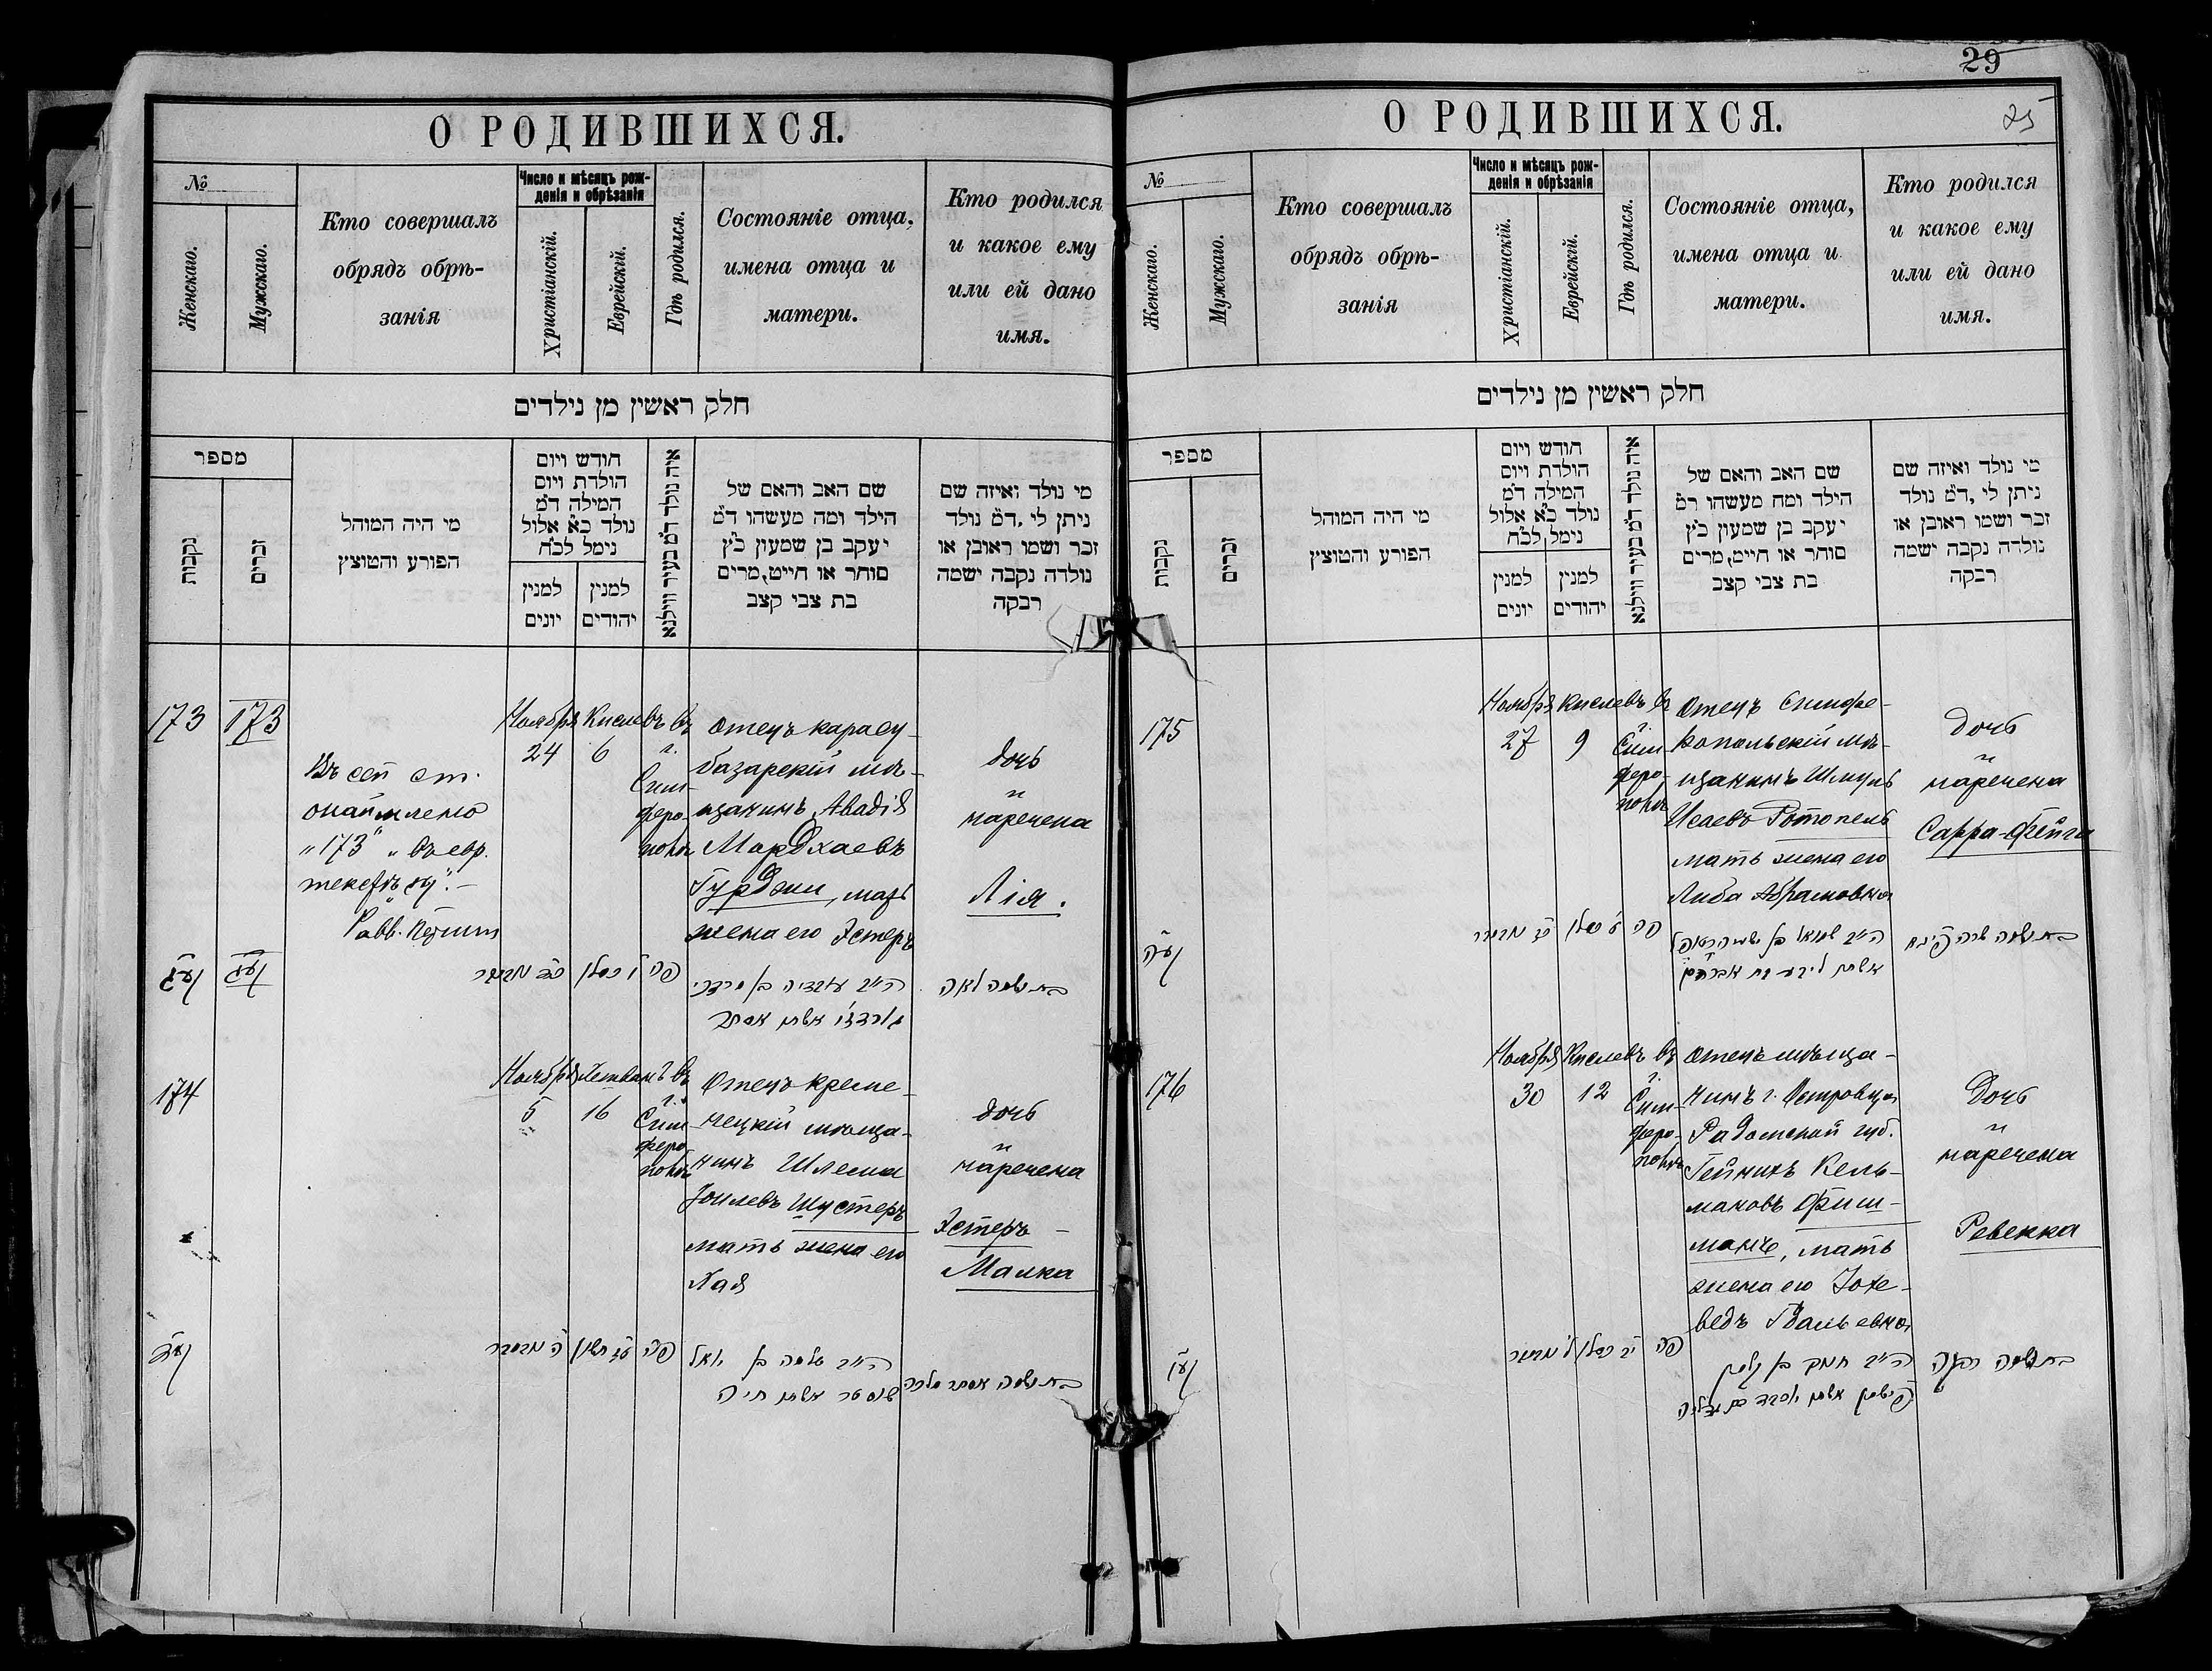 29
25
О РОДИВШИХСЯ.
№
Женскаго.
Мужскаго.
Кто совершалъ
обрядъ обрѣ-
занія
Число и мѣсяцъ рож-
денія и обрѣзанія
Христіанскій.
Еврейскій.
Гдѣ родился.
Состояніе отца,
имена отца и
матери.
Кто родился
и какое ему
или ей дано
имя.
חלק ראשין מן נילדים
מספר
נקבות
זכרים
מי היה המוהל
הפורע והמוצץ
חודש ויום
הולדת ויום
המילה ד״מ
נולד כ״א אלול
נימל לכ״ח
למנין
יונים
למנין
יהודים
איה נולד ד״מ בעיר ווילנא
שם האב והאם של
הילד ומה מעשהו ד״מ
יעקב בן שמעון כ״ץ
סוחר או חייט, מרים
בת צבי קצב
מי נולד ואיזה שם
ניתן לי, ד״מ נולד
זכר ושמו ראובן או
נולדה נקבה ישמה
רבקה
173
173
Въ сей ст.
"173" въ евр.
Рабв.
Ноября
24
Кислевъ
6
въ
г.
Сим-
феро-
полѣ
Отецъ карасу-
базарскій мѣ-
щанинъ Авадія
Мордхаевъ
Гурджи, мать
жена его Эстеръ
дочь
и
наречена
Лія.
קעג
קעג
פה
בת ושמה לאה
ר׳ עובדיה בן מרדכי
גורדזי אשתו אסתר
174
Ноября
5
Хешванъ
16
въ
г.
Сим-
феро-
полѣ
Отецъ креме-
нецкій мѣща-
нинъ Шлема
Іоилевъ Шустеръ
мать жена его
Хая
дочь
и
наречена
Эстеръ-
Малка
קעד
פה
שלמה בן יואל
שוסטר אשתו חיה
בת ושמה אסתר מלכה
О РОДИВШИХСЯ.
№
Женскаго.
Мужскаго.
Кто совершалъ
обрядъ обрѣ-
занія
Число и мѣсяцъ рож-
денія и обрѣзанія
Христіанскій.
Еврейскій.
Гдѣ родился.
Состояніе отца,
имена отца и
матери.
Кто родился
и какое ему
или ей дано
имя.
חלק ראשין מן נילדים
מספר
נקבות
זכרים
מי היה המוהל
הפורע והמוצץ
חודש ויום
הולדת ויום
המילה ד״מ
נולד כ״א אלול
נימל לכ״ח
למנין
יונים
למנין
יהודים
איה נולד ד״מ בעיר ווילנא
שם האב והאם של
הילד ומה מעשהו ד״מ
יעקב בן שמעון כ״ץ
סוחר או חייט, מרים
בת צבי קצב
מי נולד ואיזה שם
ניתן לי, ד״מ נולד
זכר ושמו ראובן או
נולדה נקבה ישמה
רבקה
175
Ноября
27
Кислевъ
9
въ
г.
Сим-
феро-
полѣ
Отецъ Симфе-
ропольскій мѣ-
щанинъ Шмуль
мать жена его
Либа Абрамовна
дочь
и
наречена
Сарра-Фейга
קעה
פה
בת ושמה שרה פייגא
176
Ноября
30
Кислевъ
12
въ
г.
Сим-
феро-
полѣ
Отецъ мѣща-
нинъ г. Островца
Радомской губ.
Гейнихъ Кель-
мановъ Фиш-
манъ, мать
жена его Іохе-
ведъ Гдальевна
Дочь
и
наречена
Ревекка
קעו
פה
בת ושמה רבקה
פישמן אשתו יוכבד בת גדליה